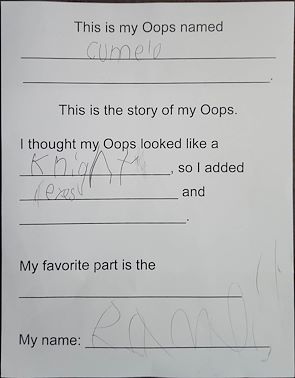 This is my Oops named
cumelo
This is the story of my Oops.
I thought my Oops looked like a
Knight, so I added
and
.
My favorite part is the
My name: